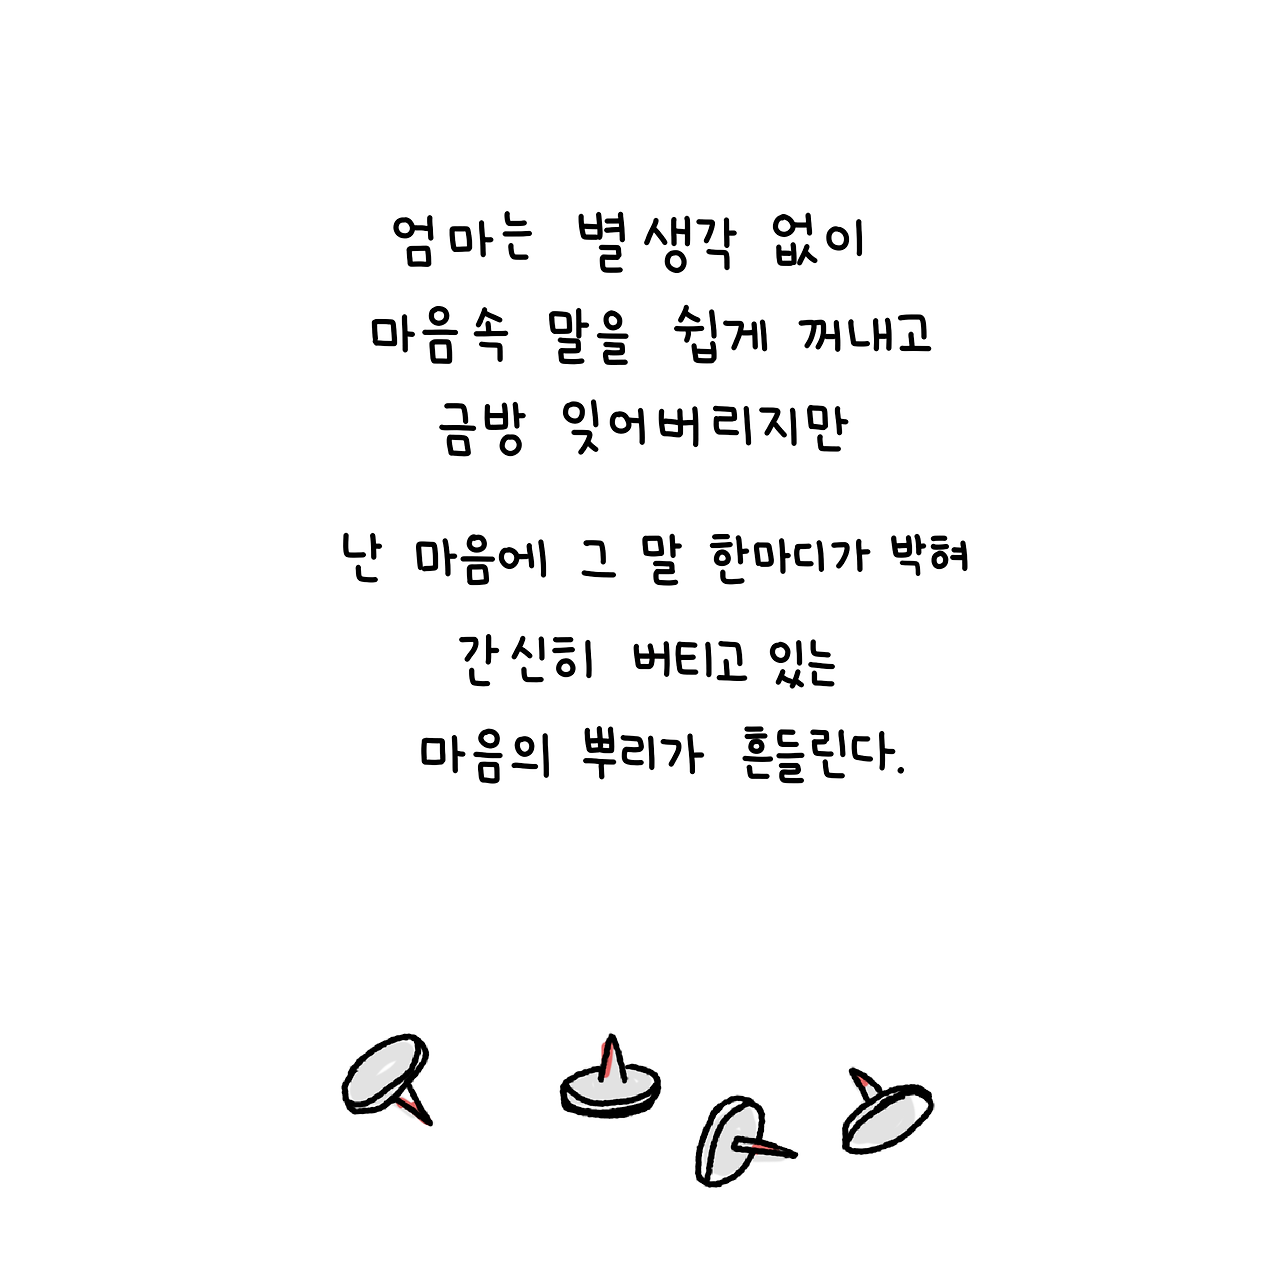 엄마는 별생각 없이
마음속 말을 쉽게 꺼내고
금방 잊어버리지만
난 마음에 그 말 한마디가 박혀
간신히 버티고 있는
마음의 뿌리가 흔들린다.